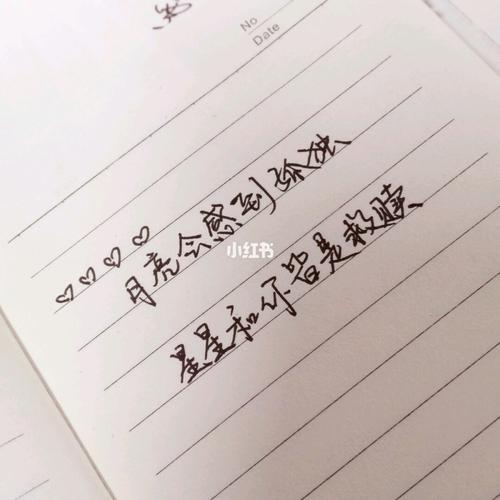 No
Date
♡♡♡♡
月亮会感到孤独
小红书
星星和你皆是救赎